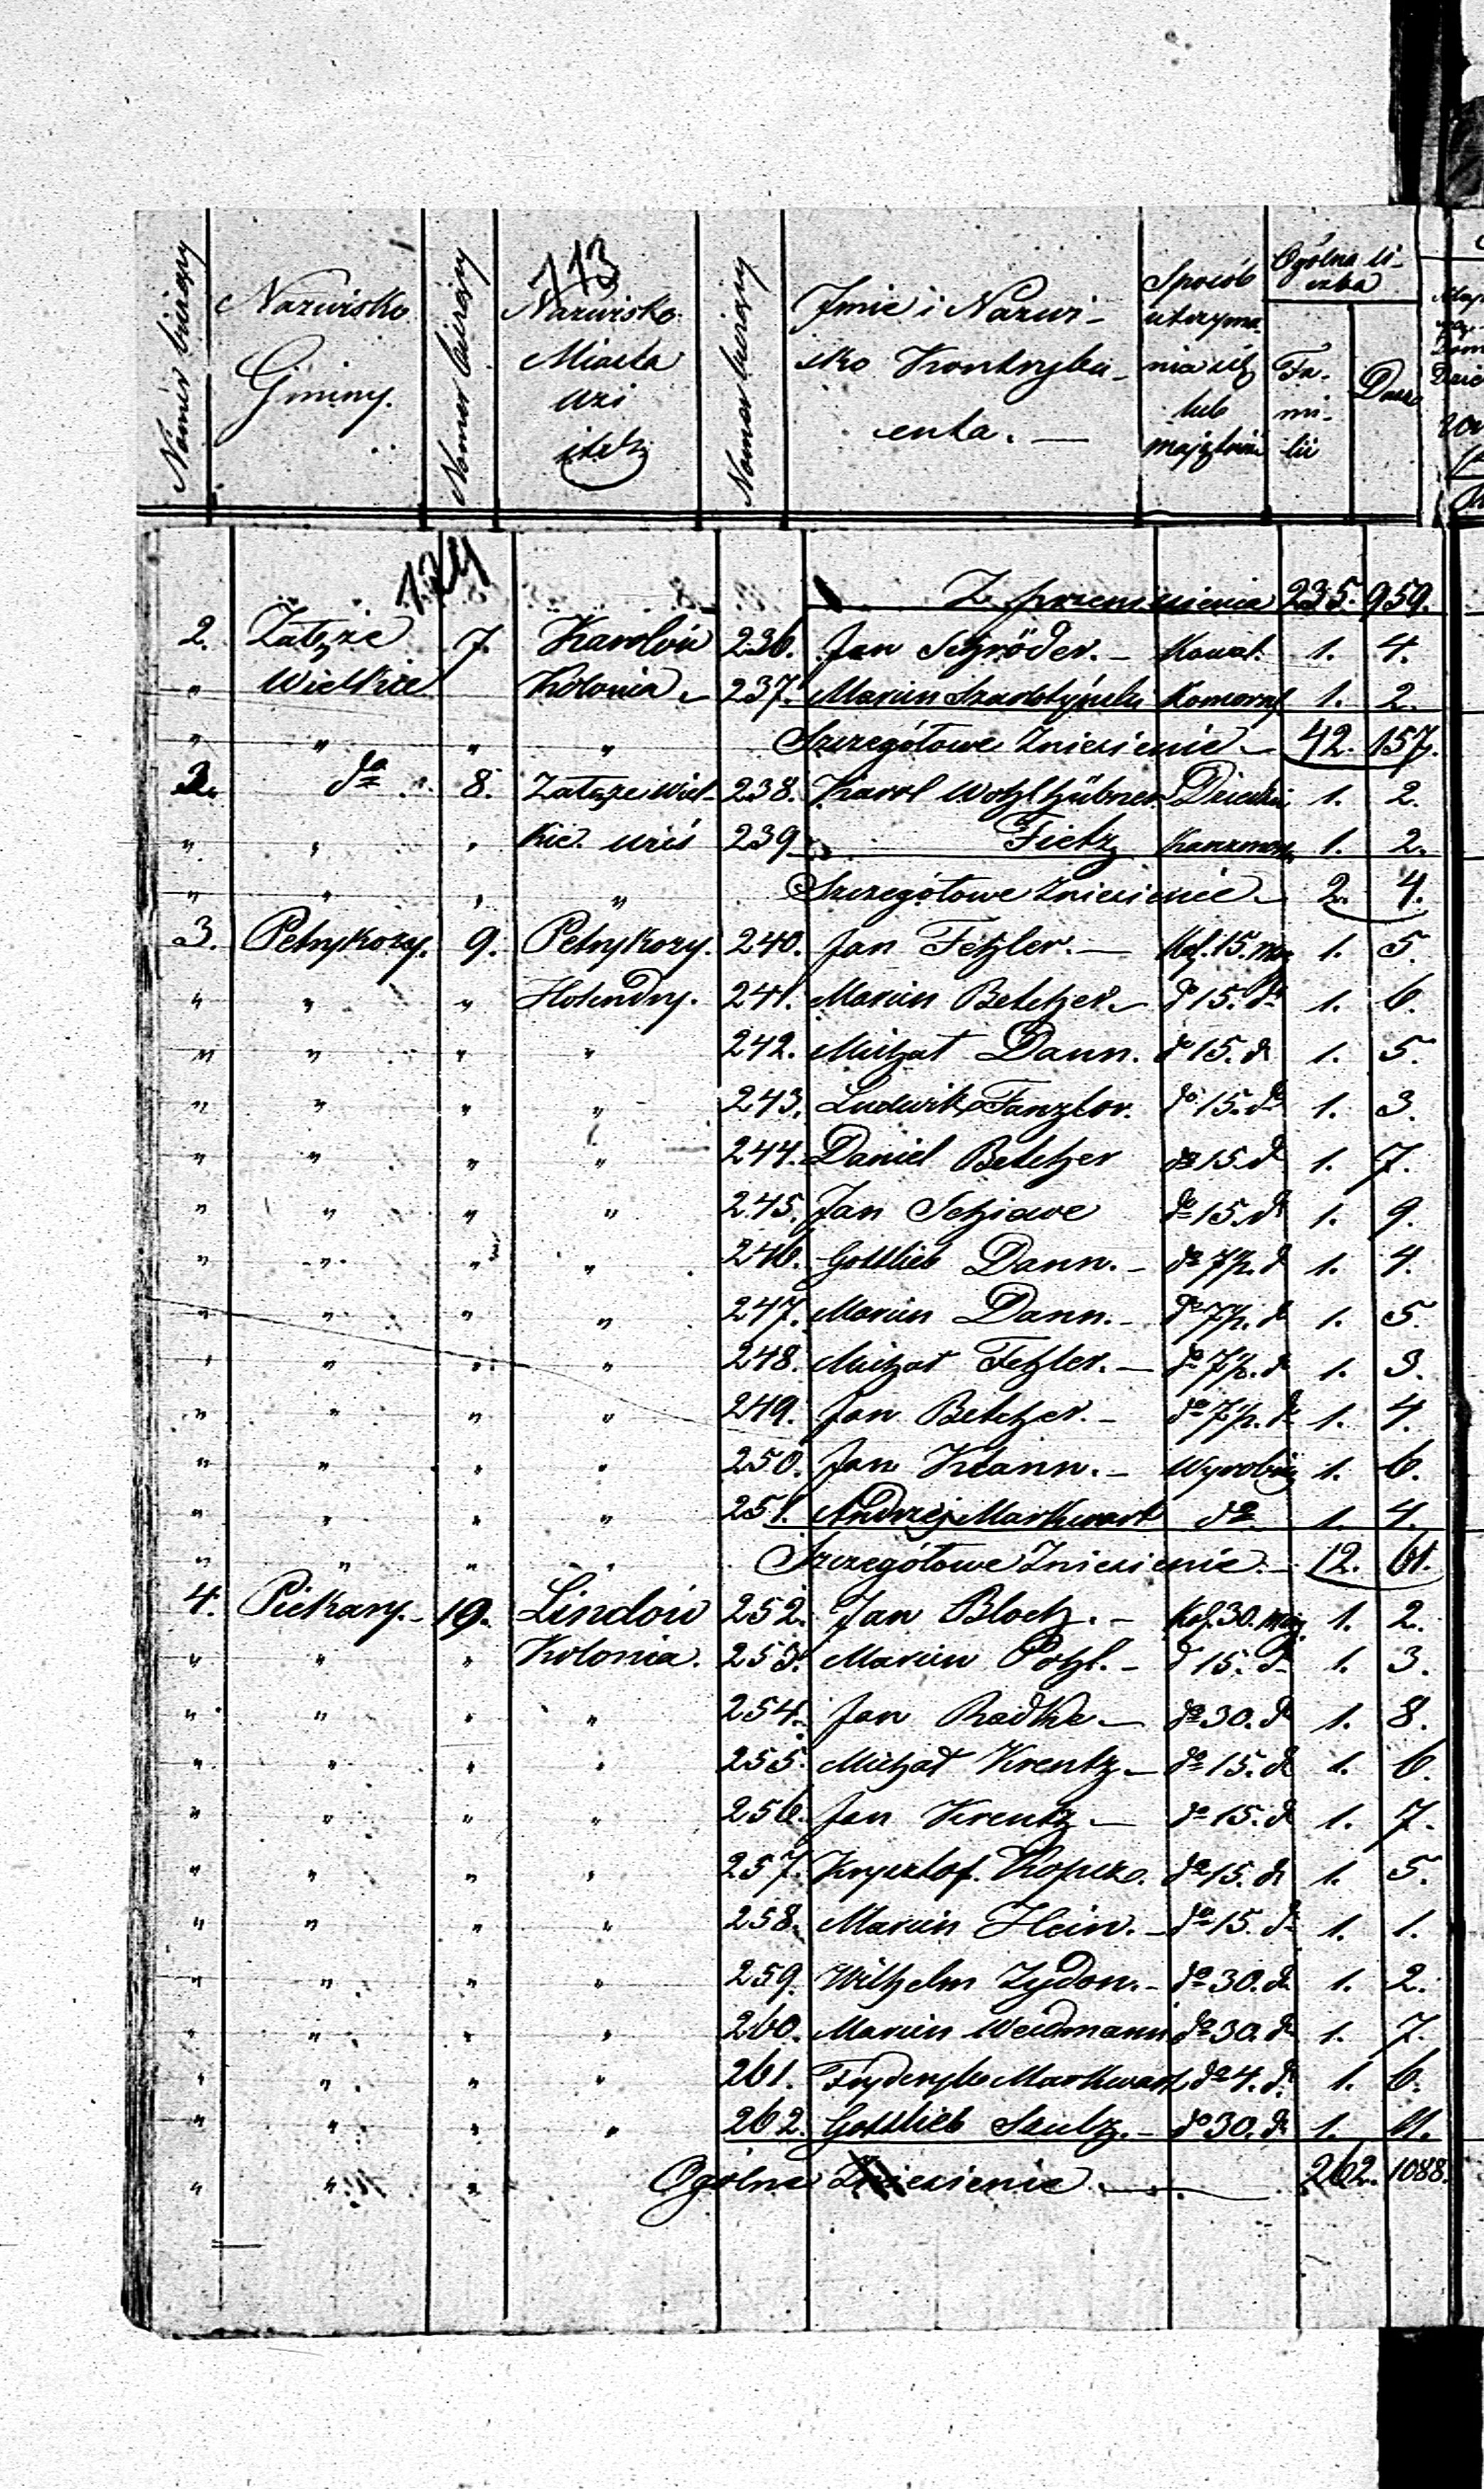 113
Numer bieżący
Nazwisko Gminy.
Numer bieżący
Nazwisko Miasta wsi itd:
Numer bieżący
Imie i Nazwisko Kontrybuenta. —
Sposób utrzymania się lub majątków
Ogólna liczba
Familii
Dusze
124
Z przeniesienia 235. 959.
2. Załęże 7. Karolów 236. Jan Schröder. – Kowal. 1. 4.
" Wielkie Kolonia – 237. Marcin Komorn. 1. 2.
" " " " Szczegółowe Zniesienie – 42. 157.
do 8. Załęże Wiel- 238. Karol Wohlhübner 1. 2.
" " " kie. wieś 239 Fietz Karczmarz 1. 2.
" " " " Szczegółowe Zniesienie – 2. 4.
3. Petrykozy. 9. Petrykozy. 240. Jan Fetzler. — Kol. 15. mor 1. 5.
" " " Holendry. 241. Marcin Beltcher – do 15. do 1. 6.
" " " " 242. Michał Dann. do 15. do 1. 5.
" " " " 243. Ludwik Fanzlor. do 15. do 1. 3.
" " " " 244. Daniel Beltcher do 15. do 1. 7.
" " " " 245. Jan Schiawe do 15. do 1. 9.
" " " " 246. Gottlieb Dann. – do 7½. do 1. 4.
" " " " 247. Marcin Dann. – do 7½. do 1. 5.
" " " " 248. Michał Fetzler. — do 7½. do 1. 3.
" " " " 249. Jan Beltcher. – do 7½. do 1. 4.
" " " " 250. Jan Klann. – Wyrobnik 1. 6.
" " " " 251. Andrzej Markwart do 1. 4.
" " " " Szczegółowe Zniesienie. – 12. 61.
4. Piekary. – 10. Lindów 252. Jan Bloch. – Kol. 30. mor. 1. 2.
" " " Kolonia. 253. Marcin Pohl. – do 15. do 1. 3.
" " " " 254. Jan Radtke – do 30. do 1. 8.
" " " " 255. Michał Krentz – do 15. do 1. 6.
" " " " 256. Jan Krentz – do 15. do 1. 7.
" " " " 257. Krysztof. do 15. do 1. 5.
" " " " 258. Marcin Hein. – do 15. do 1. 1.
" " " " 259. Wilhelm Zydon. – do 30. do 1. 2.
" " " " 260. Marcin Weidmann do 30. do 1. 7.
" " " " 261. Fryderyk Markwart do 4. do 1. 6.
" " " " 262. Gottlieb Szulz. – do 30. do 1. 11.
" " " Ogólne Zniesienie. — 262. 1088.